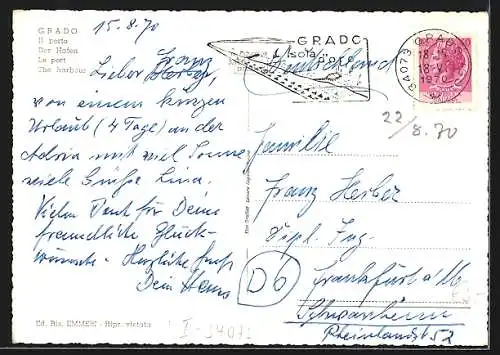 15.8.70
GRADO
Il porto
Der Hafen
Le port
The harbour
Lieber Franz
von einem kurzen
Urlaub (4 Tage) an der
Adria mit viel Sonne
viele Grüße Lina.
Vielen Dank für Deine
freundliche Glück-
wünsche. Herzliche
Dein Hans
Ed. Bis. EMMEBI - Ripr. vietata
GRADO
Isola
34073 GRADO
1970
22/8.70
Deutschland
Familie
Franz Herber
Dipl. Ing.
D6
Frankfurt a/M
Schwanheim
Rheinlandst 52
I-34073